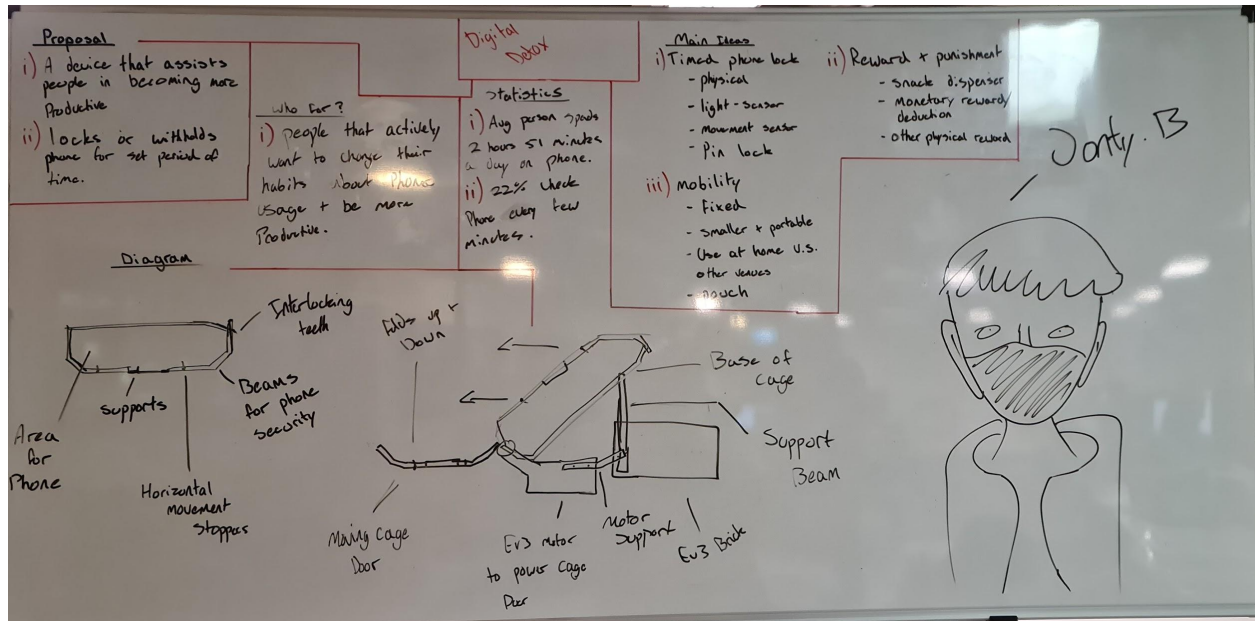 Proposal
i) A device that assists
people in becoming more
Productive
ii) locks or withholds
phone for set period of
time.
Who for?
i) people that actively
want to change their
habits about Phone
usage + be more
Productive.
Digital
Detox
Statistics
i) Avg person spends
2 hours 51 minutes
a day on phone.
ii) 22% check
Phone every few
minutes.
Main Ideas
i) Timed phone lock
- physical
- light-sensor
- movement sensor
- Pin lock
ii) Reward + punishment
- snack dispenser
- monetary reward/
deduction
- other physical reward
iii) mobility
- Fixed
- smaller + portable
- Use at home v.s.
other venues
- pouch
Jonty.B
Diagram
Interlocking
teeth
Beams
for phone
security
Supports
Area
for
Phone
Horizontal
movement
Stoppers
Folds up +
Down
Base of
cage
Support
Beam
Moving Cage
Door
Ev3 Motor
to power Cage
Door
Motor
Support
Ev3 Brick